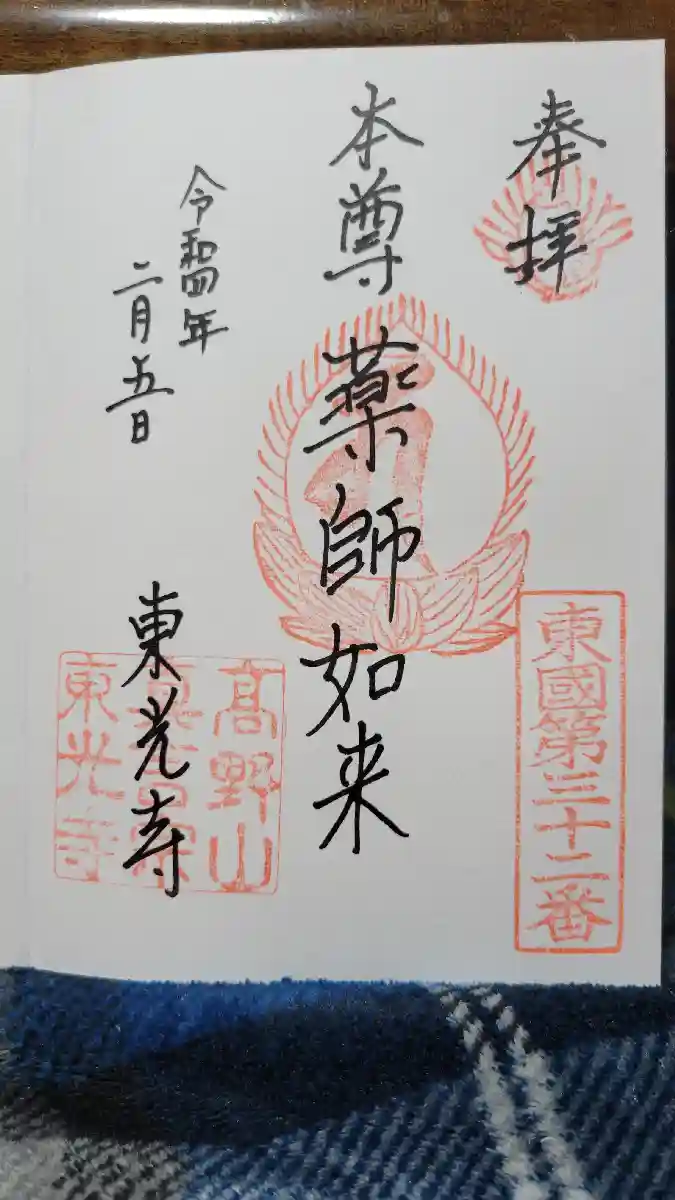 奉拝
東國第三十二番
本尊 薬師如来
令和四年
二月五日
東光寺
高野山
真言宗
東光寺